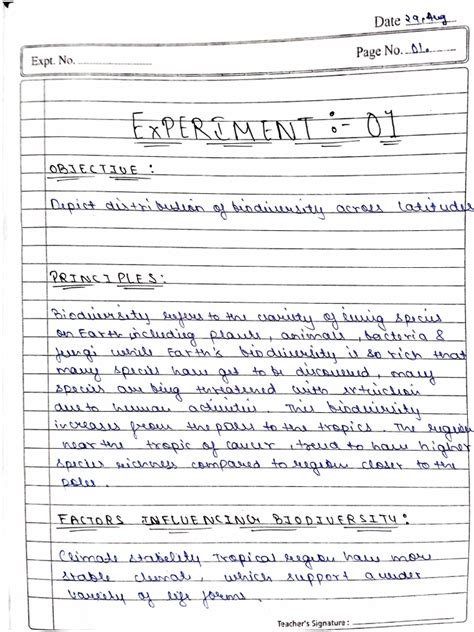 Date 29, Aug
Expt. No.
Page No. 01.
EXPERIMENT :- 01
OBJECTIVE :
Depict distribution of biodiversity across latitudes
PRINCIPLES:
Biodiversity refers to the variety of living species
on Earth including plants, animals, bacteria &
fungi while Earth's biodiversity is so rich that
many species have yet to be discovered, many
species are being threatened with extinction
due to human activities. This biodiversity
increases from the poles to the tropics. The region
near the tropic of cancer, tend to have higher
species richness compared to region closer to the
poles.
FACTORS INFLUENCING BIODIVERSITY :
Climate stability Tropical region have more
stable climat, which support a wider
variety of life forms.
Teacher's Signature :